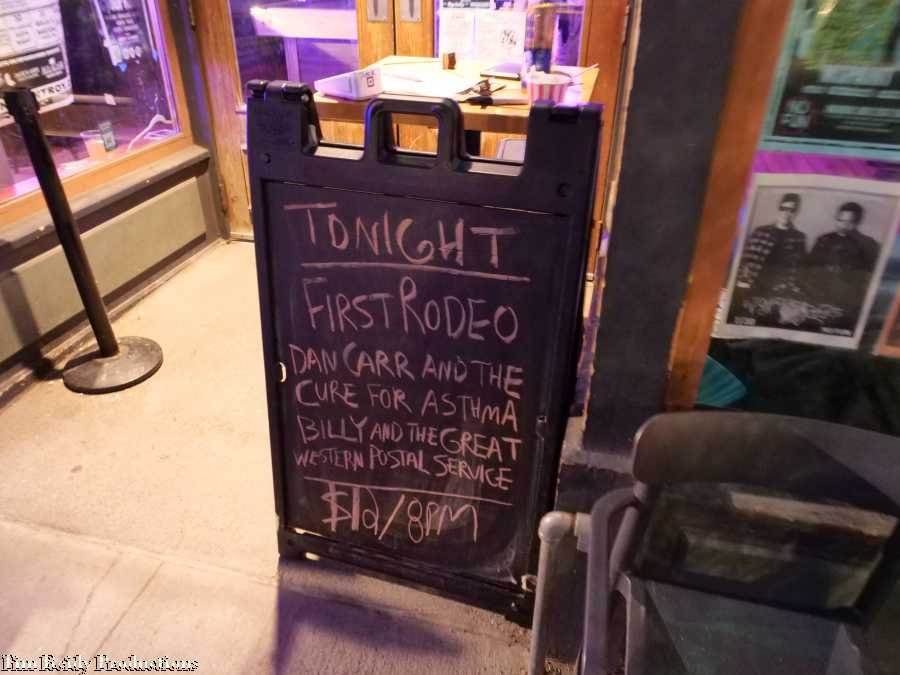 TONIGHT
FIRST RODEO
DAN CARR AND THE
CURE FOR ASTHMA
BILLY AND THE GREAT
WESTERN POSTAL SERVICE
$12/8PM
Tim Reidy Productions